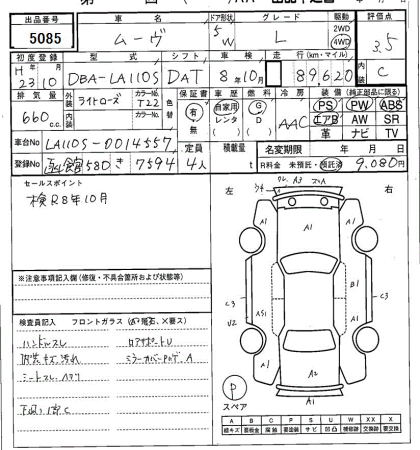 出品番号 車名 ドア形状 グレード 駆動 評価点
5085 ムーヴ 5 W L 2WD 4WD 3.5
初度登録 型式 シフト 車検 走行(km・マイル) 内装
H 23/10 DBA-LA110S DAT 8年10月 89,620 C
排気量 外装 カラーNo. 色替 車歴 燃料 冷房 装備(純正部品に限る)
660c.c. ライトローズ T22 有・無 自家用 レンタ G D AAC PS PW ABS
内装 カラーNo. エアB AW SR
革 ナビ TV
車台No LA110S-0014557 定員 積載量 名変期限 年 月 日
登録No 580 き 7594 4人 t R料金 未預託・預託済 9,080円
セールスポイント
検R8年10月
左 右
A3 A1
A1 A1
A1
B1
C3 C3
AS1 A1
U2
※注意事項記入欄(修復・不具合箇所および状態等)
検査員記入 フロントガラス(A・飛石、×要ス)
ハンドルスレ リアサポートU
内装キズ汚れ ミラーカバーPのゲ.A
シートスレ.
下廻り C
A2
A1
P
スペア
A B C P S U W XX X
線キズ 要板金 腐食 要塗装 サビ 凹凸 補修跡 交換跡 要交換